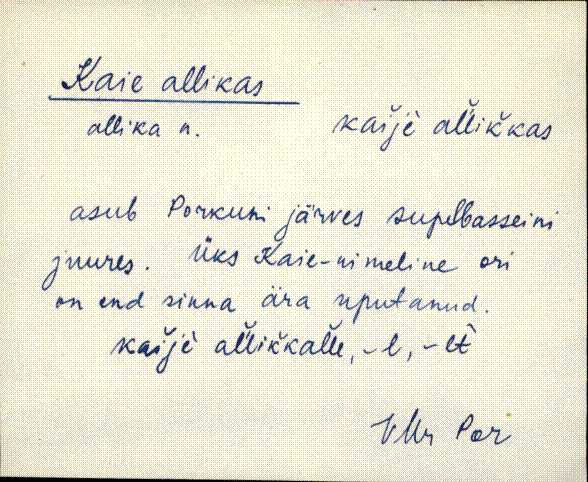 Kaie allikas
allika n. kaĭjè al̆lik̆kas
asub Porkuni järves supelbasseini
juures. Üks Kaie-nimeline ori
on end sinna ära uputanud.
kaĭjè al̆lik̆kal̆le, -l, -lt̀
VMr Por